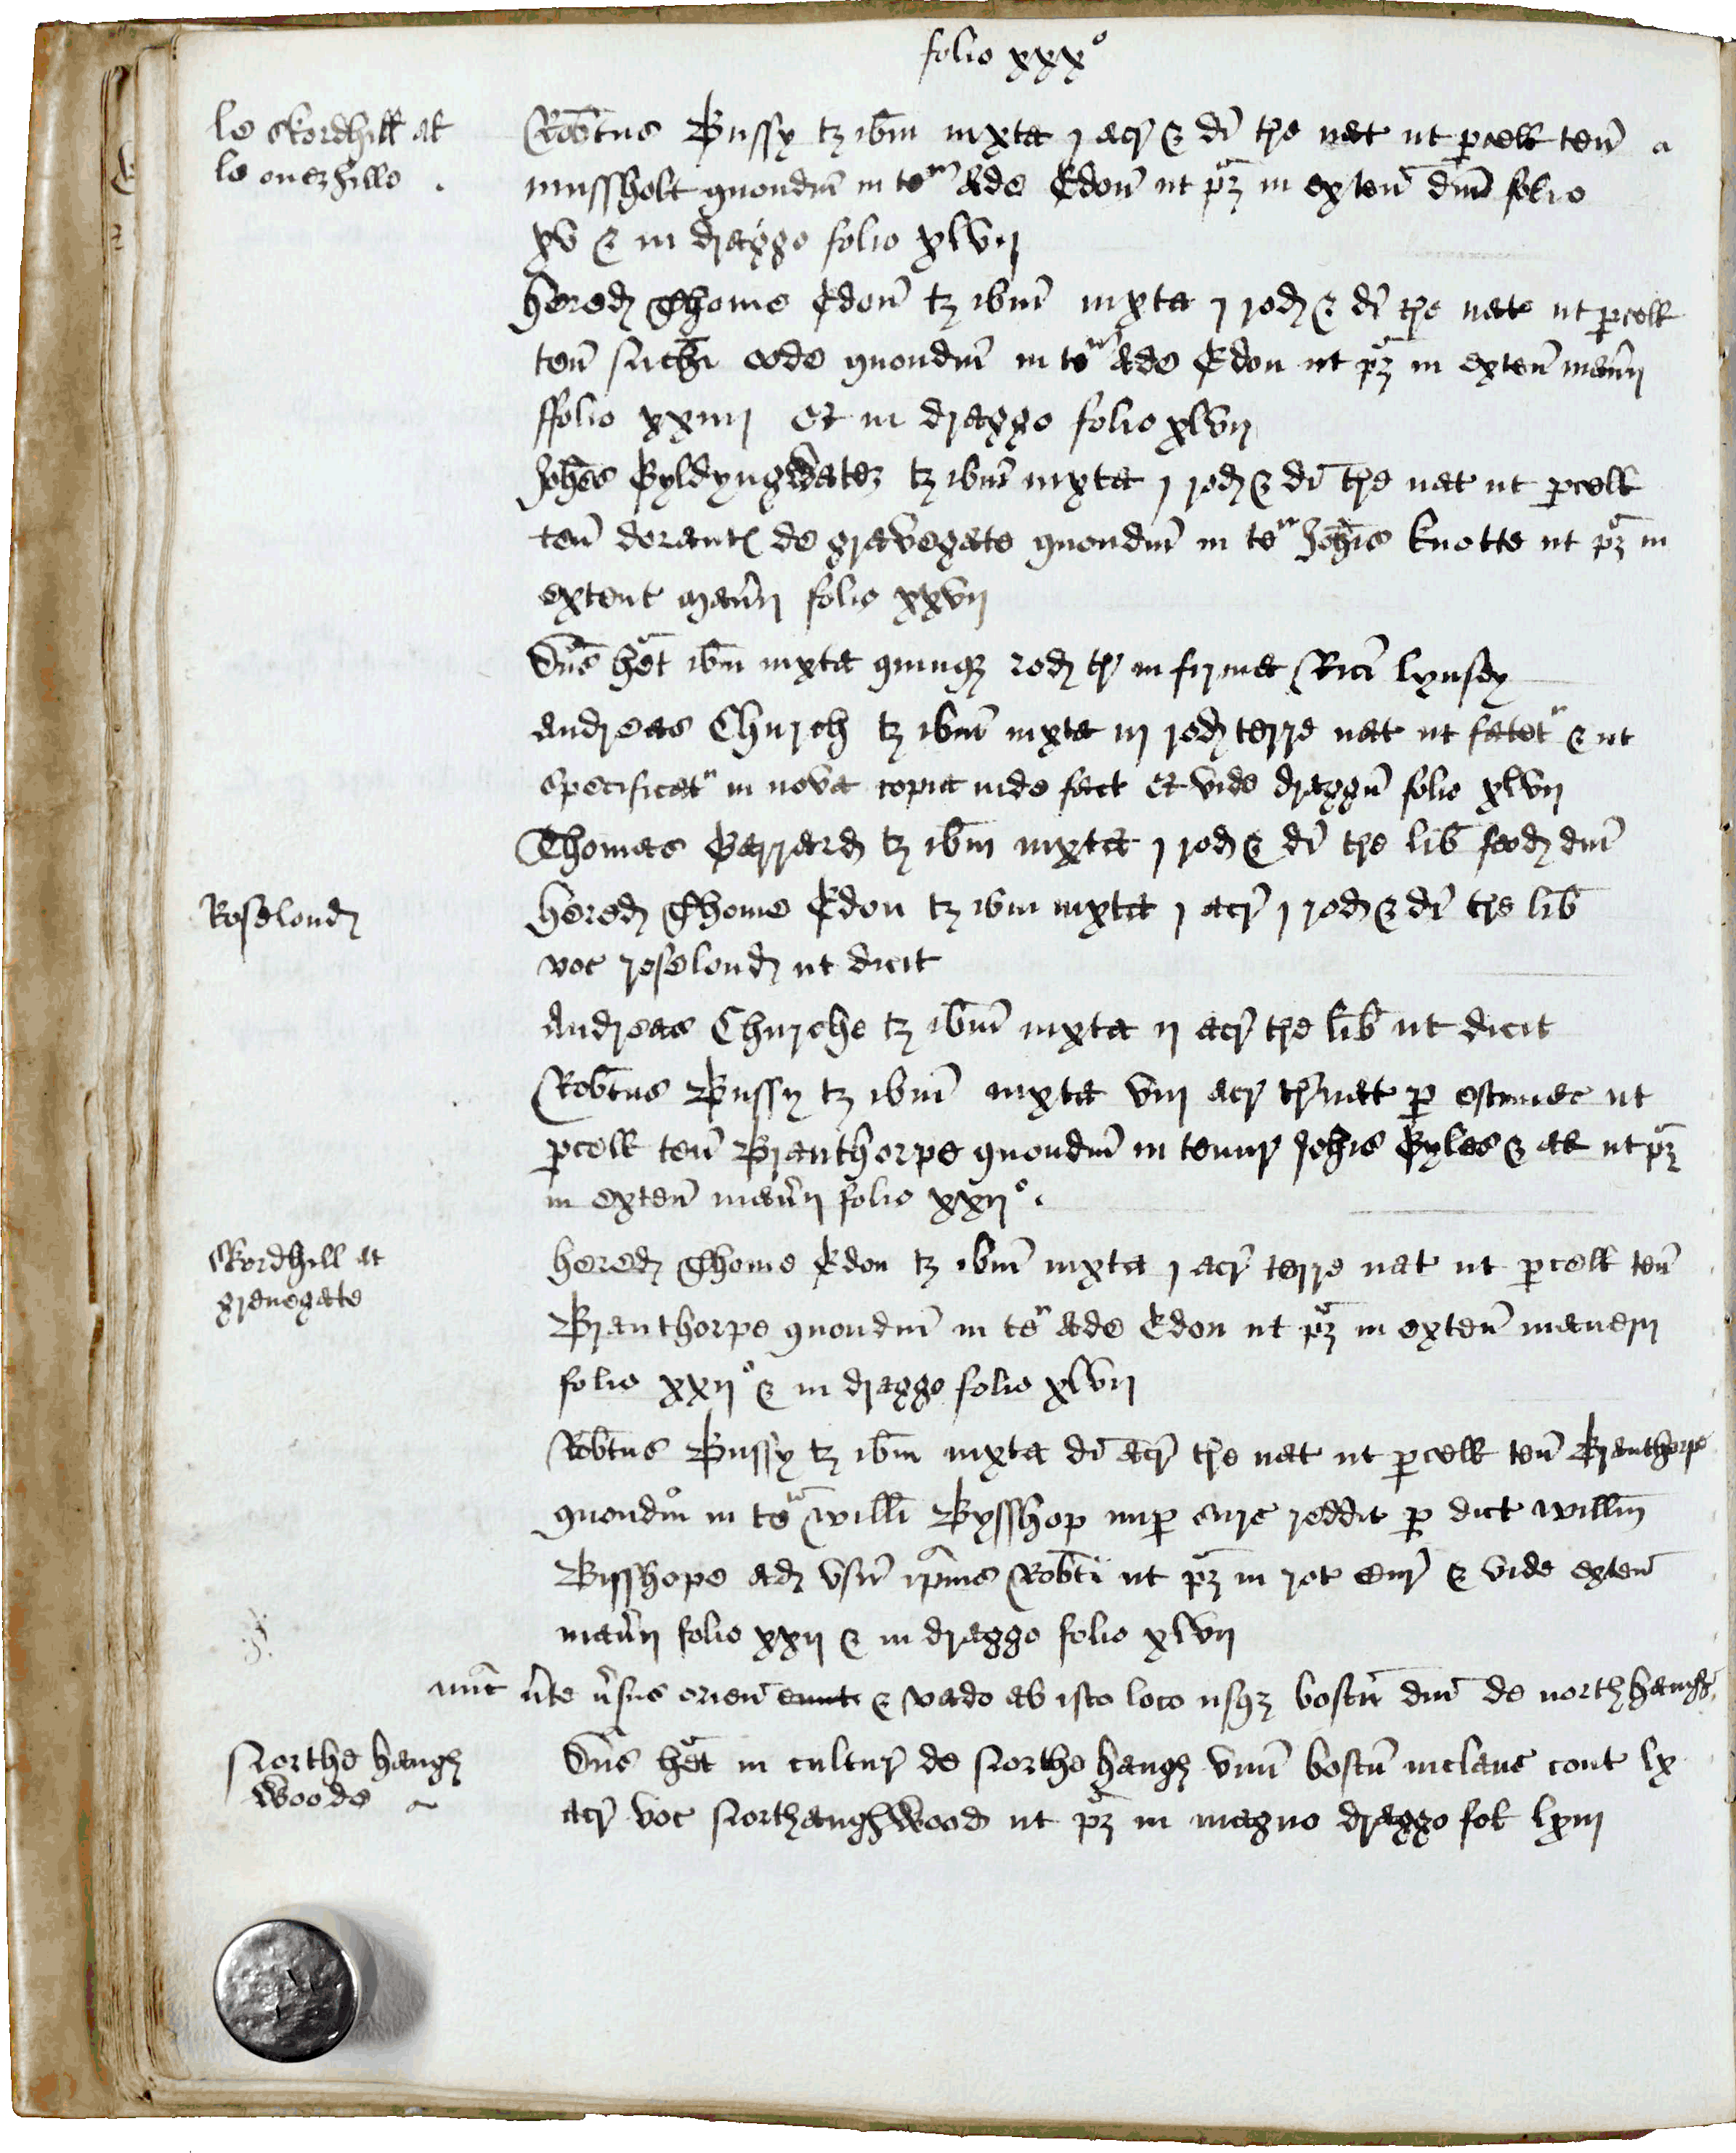 folio xxx°
le Skordhill at
le ouerhille
Robtus Bussy tz ibm iuxta j acr & di tre nat ut pcell ten a
mussholt quondm in te^r Ade Edon ut pz in exten dni folio
xv & in dragge folio xlvij
hered Thome Edon tz ibm iuxta j rod & di tre nat ut pcell
ten quondm in te^r Ade Edon ut pz in exten man̄ij
ffolio xxiiij Et in dragge folio xlvij
Johes Pyldyngwatez tz ibm iuxta j rod & di tre nat ut pcell
ten de gravegate quondm in te^r Johis knotte ut pz in
extent man̄ij folio xxvij
Dns het ibm iuxta quinqz rod tr in firma Rici lynsey
Andreas Church tz ibm iuxta iij rod terre nat ut fatet^r & ut
specificat^r in nova copia inde fact Et vide draggu folio xlvij
Thomas Parrard tz ibm iuxta j rod & di tre lib feod dni
Roselond
hered Thome Edon tz ibm iuxta j acr j rod & di tre lib
voc roselond ut dicit
Andreas Churche tz ibm iuxta ij acr tre lib ut dicit
Robtus Bussy tz ibm iuxta viij acr tr nat p estimac ut
pcell ten Branthorpe quondm in tenur Johis Pyles & al ut pz
in exten man̄ij folio xxij°
Skordhill at
grenegate
hered Thome Edon tz ibm iuxta j acr terre nat ut pcell ten
Branthorpe quondm in te^r Ade Edon ut pz in exten manerij
folio xxij° & in dragge folio xlvij
Robtus Bussy tz ibm iuxta di acr tre nat ut pcell ten Branthorpe
quondm in te^r willi Bysshop nup cure reddit p dict willm
Bisshope ad usu ipius Robti ut pz in rot cur & vide exten
man̄ij folio xxij & in dragge folio xlvij
nuc v̄te v̄sus orien eunt & vado ab isto loco usqz boscu dni de northhaugh
Northe haugh
woode
Dns het in cultur de Northe haugh unu boscu inclaus cont lx
acr voc Northaughwood ut pz in magno dragge fol lxiij